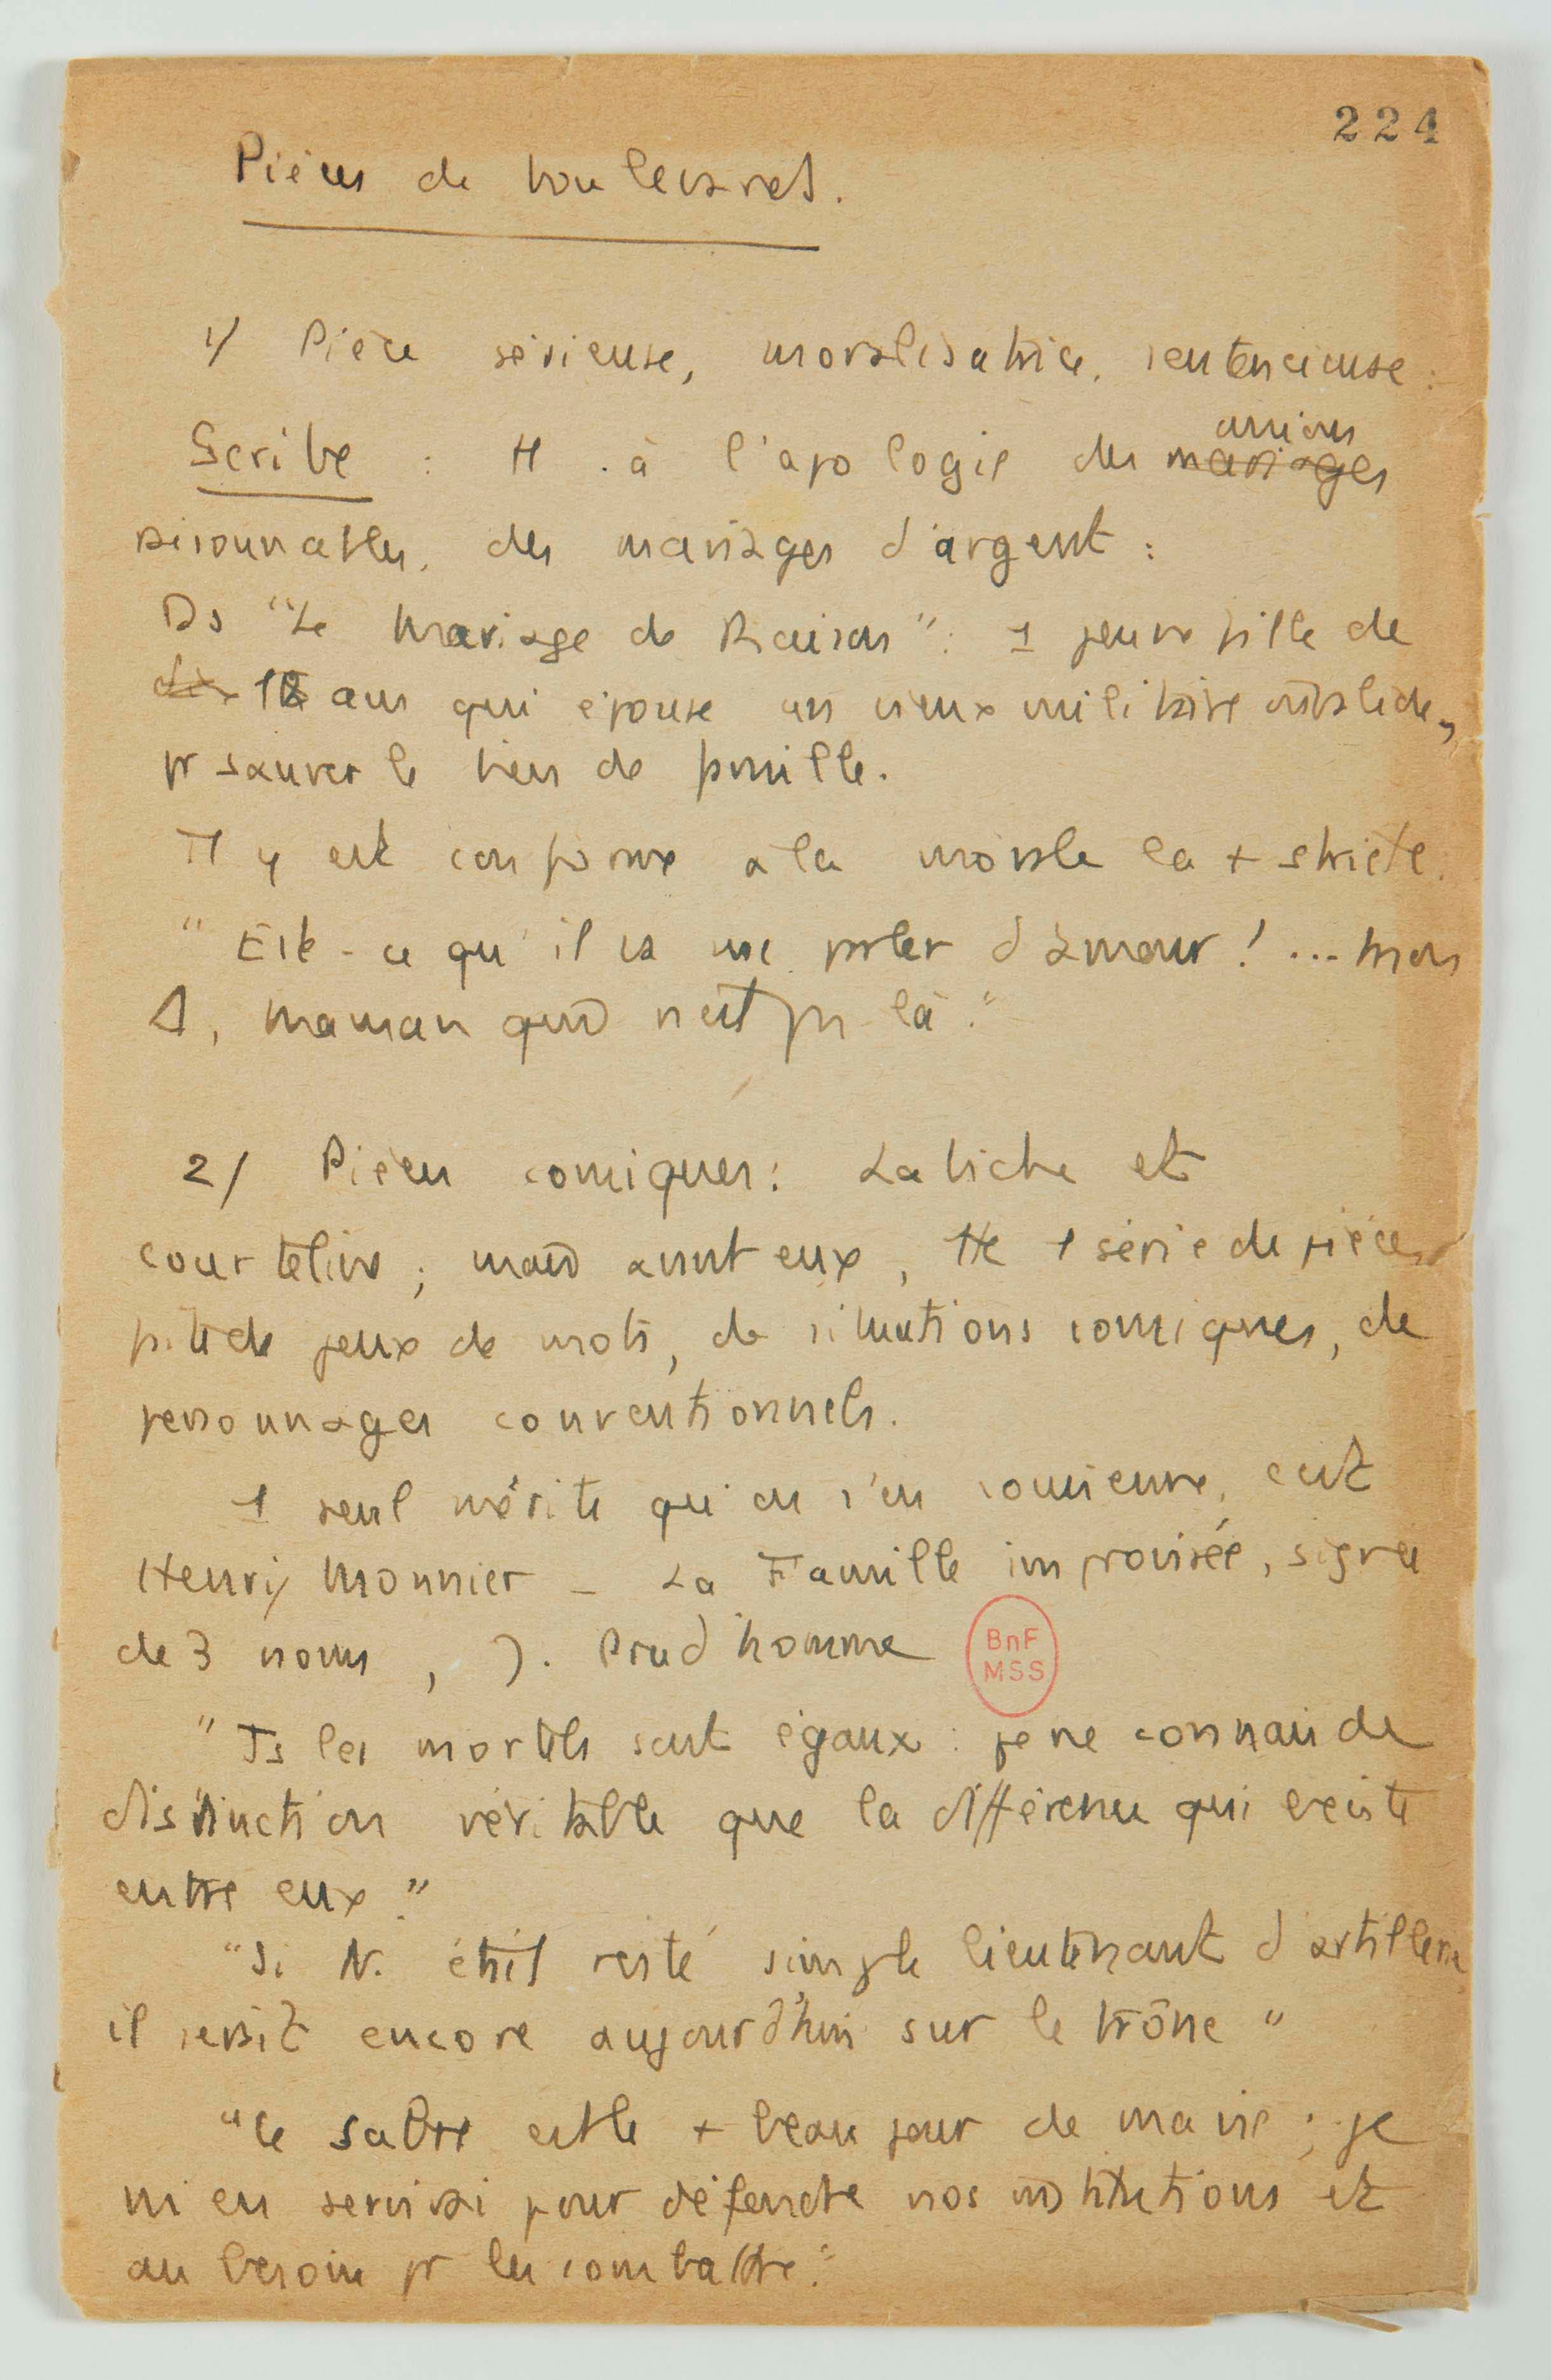 224
Pièces de boulevard.
1/ Pièce sérieuse, moralisatrice, sentencieuse :
Scribe : à l'apologie des mariages unions
raisonnables, des mariages d'argent :
Ds "Le Mariage de Raison" : 1 jeune fille de
dix 18 ans qui épouse un vieux militaire invalide,
pr sauver le bien de famille.
Il y est conforme à la morale la + stricte.
" Est-ce qu'il va me parler d'amour ! ... mon
D, maman qui n'est pas là."
2/ Pièces comiques : Labiche et
Courteline ; mais avant eux, tte 1 série de pièces
de jeux de mots, de situations comiques, de
personnages conventionnels.
1 seul mérite qu'on s'en souvienne, c'est
Henry Monnier - La Famille improvisée, signée
de 3 noms, J. Prud'homme
BnF
MSS
" Ts les mortels sont égaux : je ne connais de
distinction véritable que la différence qui existe
entre eux."
"Si N. était resté simple lieutenant d'artillerie,
il serait encore aujourd'hui sur le trône "
"Ce sabre est le + beau jour de ma vie ; je
m'en servirai pour défendre nos institutions et
au besoin pr les combattre."